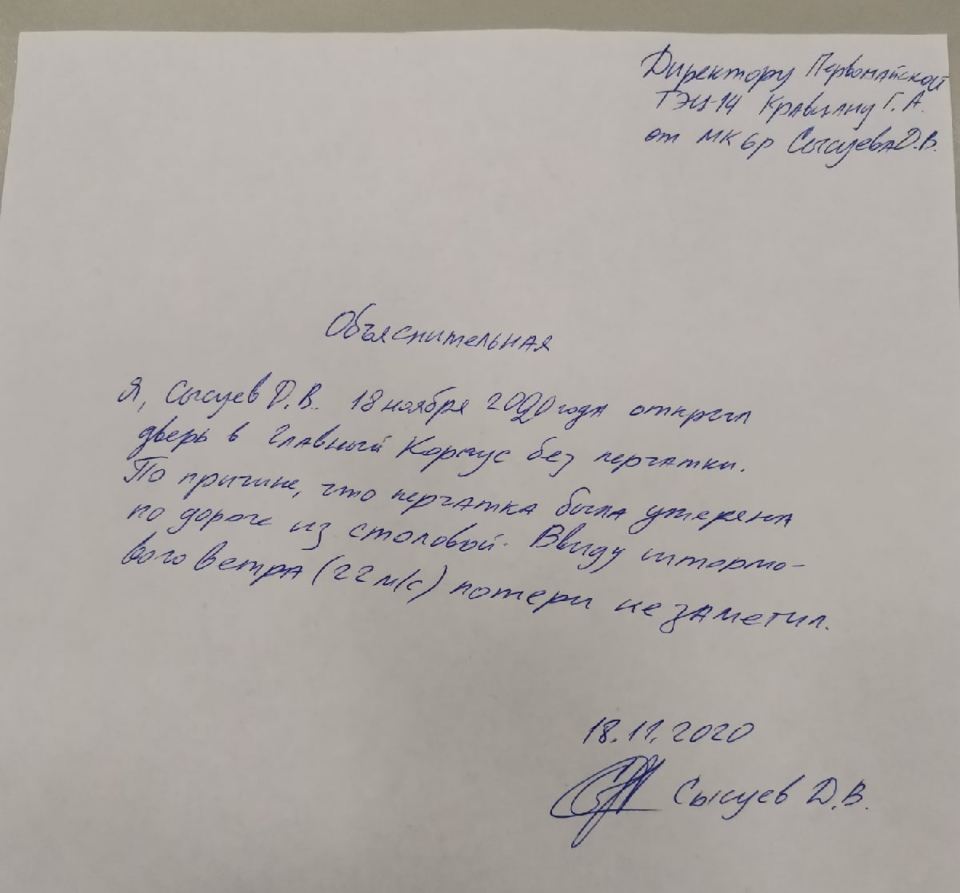 Директору Первомайской
ТЭЦ-14 Кравцану Г.А.
от МК 6р Сысуева Д.В.
Объяснительная
Я, Сысуев Д.В. 18 ноября 2020 года открыл
дверь в Главный Корпус без перчатки.
По причине, что перчатка была утеряна
по дороге из столовой. Ввиду штормо-
вого ветра (22 м/с) потери не заметил.
18.11.2020
Сысуев Д.В.